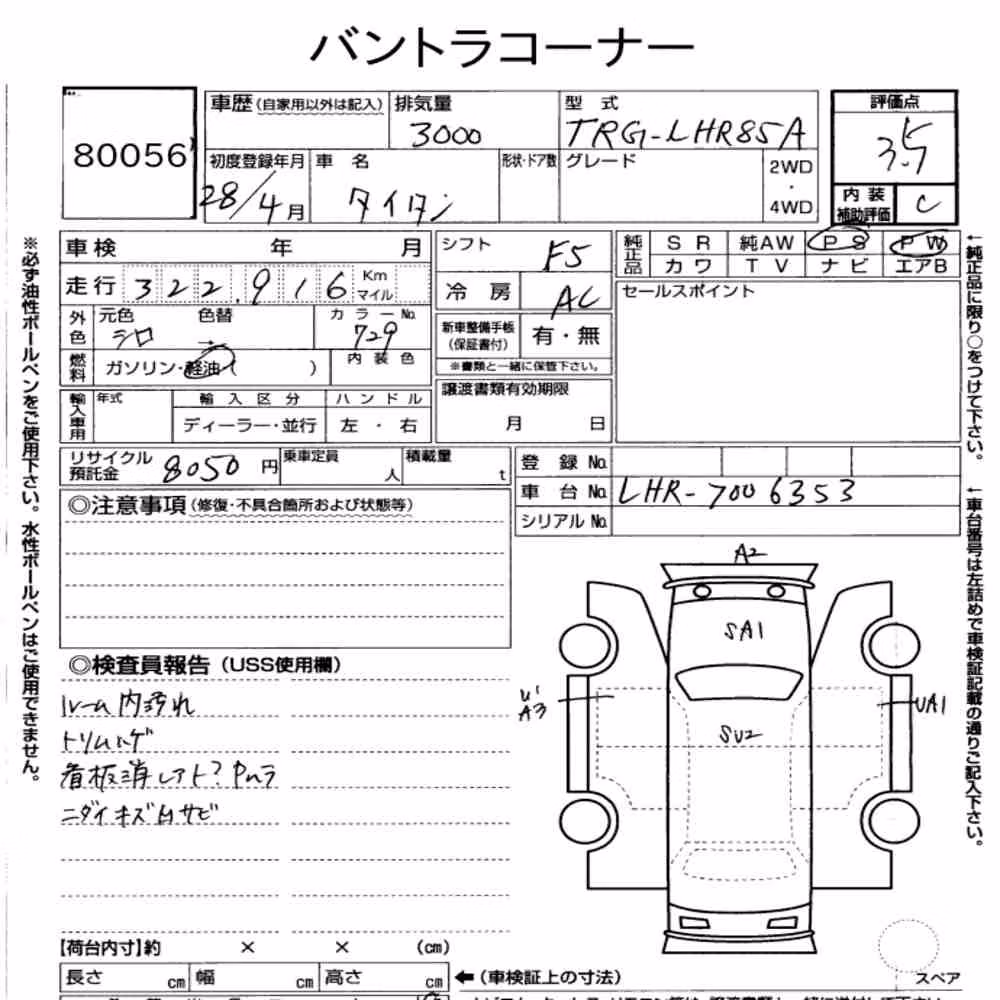 バントラコーナー
80056
車歴(自家用以外は記入)
排気量
3000
型 式
TRG-LHR85A
評価点
3.5
初度登録年月
28/4月
車 名
タイタン
形状・ドア数
グレード
2WD
・
4WD
内装
補助評価
C
※必ず油性ボールペンをご使用下さい。水性ボールペンはご使用できません。
車検 年 月
走行 322,916 Km
マイル
外色
元色 色替
シロ →
カラーNo.
729
燃料
ガソリン・軽油( )
内装色
輸入車用
年式
輸入区分
ハンドル
ディーラー・並行
左・右
シフト
F5
冷房
AC
新車整備手帳
(保証書付)
有・無
※書類と一緒に保管下さい。
譲渡書類有効期限
月 日
純正品
SR 純AW PS PW
カワ TV ナビ エアB
セールスポイント
←純正品に限り○をつけて下さい。
リサイクル
預託金
8050円
乗車定員
人
積載量
t
登録No.
車台No.
LHR-7006353
シリアルNo.
←車台番号は左詰めで車検証記載の通りご記入下さい。
◎注意事項(修復・不具合箇所および状態等)
◎検査員報告(USS使用欄)
ルーム内汚れ
トリムハゲ
看板消しアト?
ニダイキズ凹サビ
A2
SA1
U'
A3
UA1
SU2
【荷台内寸】約 × × (cm)
長さ cm 幅 cm 高さ cm
←(車検証上の寸法)
スペア